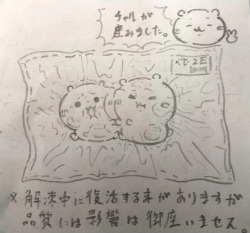 チャルが
産みました。
※解凍中に復活する事がありますが
品質には影響は御座いません。